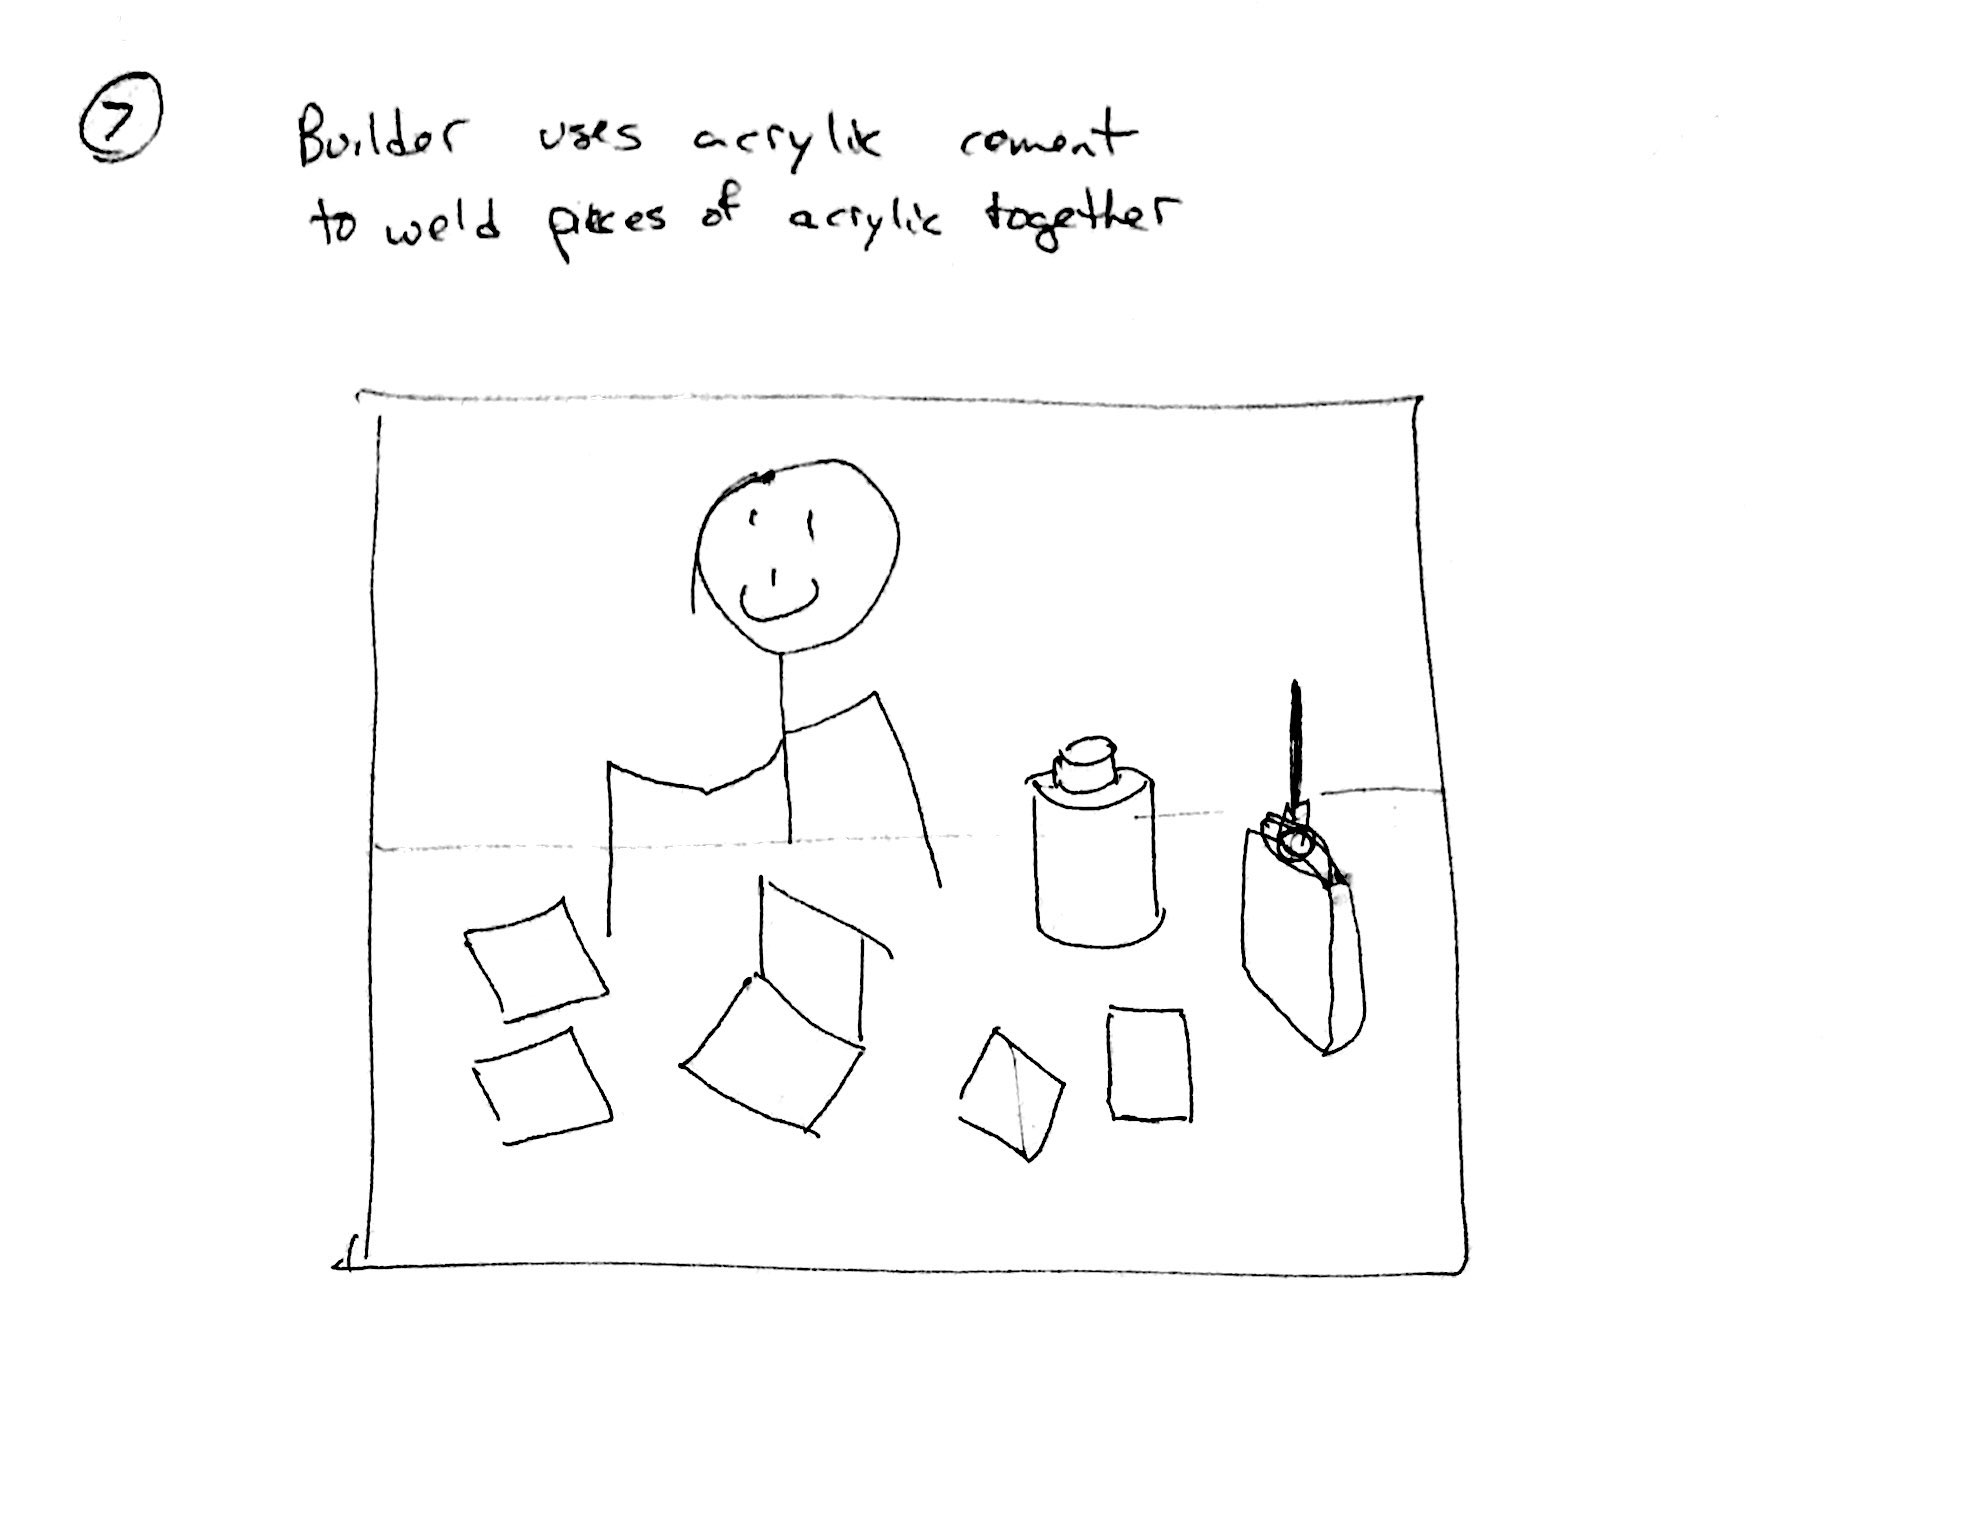 7
Builder uses acrylic cement
to weld pieces of acrylic together